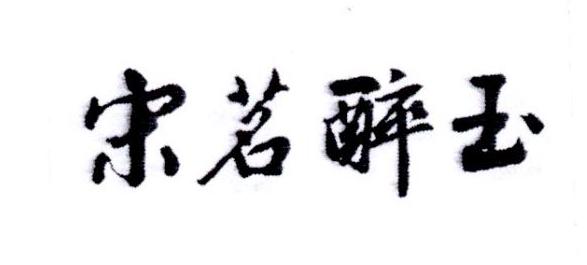 宋茗醉玉